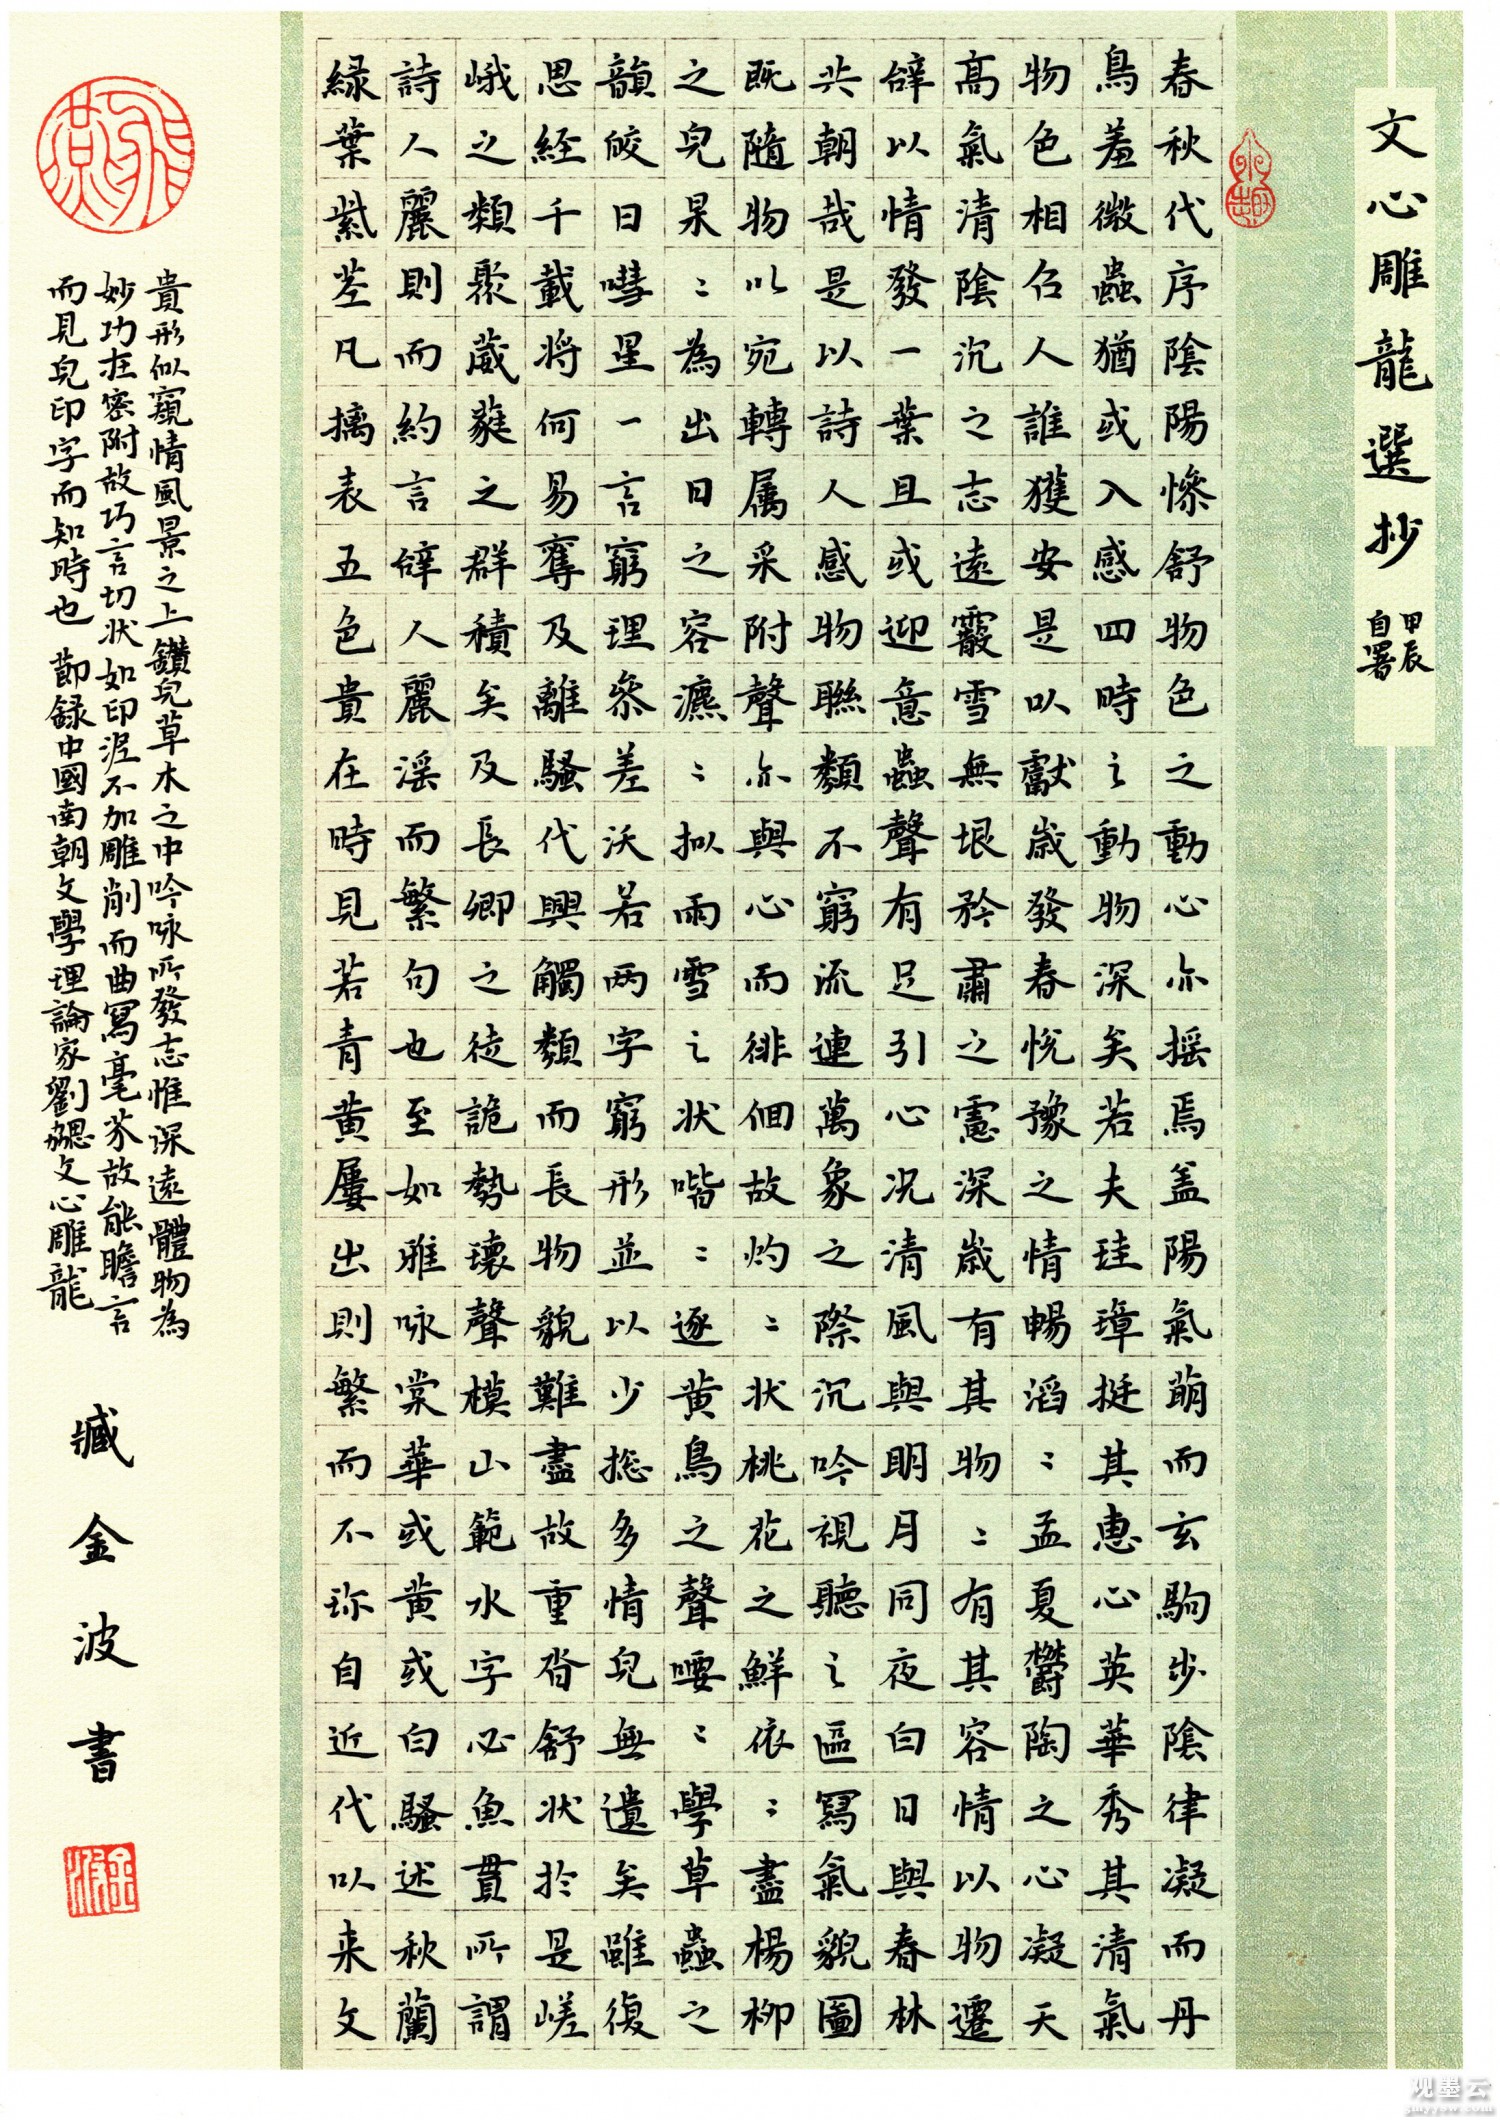 文心雕龍選抄
甲辰
自署
春秋代序陰陽慘舒物色之動心亦摇焉盖陽氣萌而玄駒步陰律凝而丹
鳥羞微蟲猶或入感四時之動物深矣若夫珪璋挺其惠心英華秀其清氣
物色相召人誰獲安是以獻歲發春悅豫之情暢滔〻孟夏鬱陶之心凝天
高氣清陰沉之志遠霰雪無垠矜肅之慮深歲有其物〻有其容情以物遷
辭以情發一葉且或迎意蟲聲有足引心况清風與明月同夜白日與春林
共朝哉是以詩人感物聯類不窮流連萬象之際沉吟視聽之區寫氣貌圖
既隨物以宛轉属采附聲亦與心而徘徊故灼〻状桃花之鮮依〻盡楊柳
之皃杲〻為出日之容瀌〻拟雨雪之状喈〻逐黄鳥之聲喓〻學草蟲之
韻皎日嘒星一言窮理叅差沃若两字窮形並以少揔多情皃無遺矣雖復
思経千載将何易奪及離騷代興觸類而長物貌難盡故重沓舒状於是嵯
峨之類聚葳蕤之群積矣及長卿之徒詭勢瓌聲模山範水字必魚貫所謂
詩人麗則而約言辭人麗淫而繁句也至如雅咏棠華或黄或白騷述秋蘭
緑葉紫莖凡摛表五色貴在時見若青黄屢出則繁而不珍自近代以来文
貴形似窺情風景之上鑽皃草木之中吟咏所發志惟深遠體物為
妙功在密附故巧言切状如印泥不加雕削而曲寫毫芥故能瞻言
而見皃印字而知時也 節録中國南朝文學理論家劉勰文心雕龍
臧金波書
观墨云